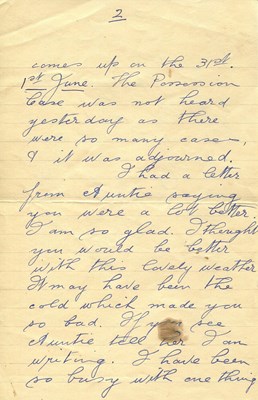 2
comes up on the 31st.
1st June. The Possession
Case was not heard
yesterday as there
were so many cases,
& it was adjourned.
I had a letter
from Auntie saying
you were a lot better.
I am so glad. I thought
you would be better
with this lovely weather
It may have been the
cold which made you
so bad. If see
Auntie tell her I am
writing. I have been
so busy with one thing